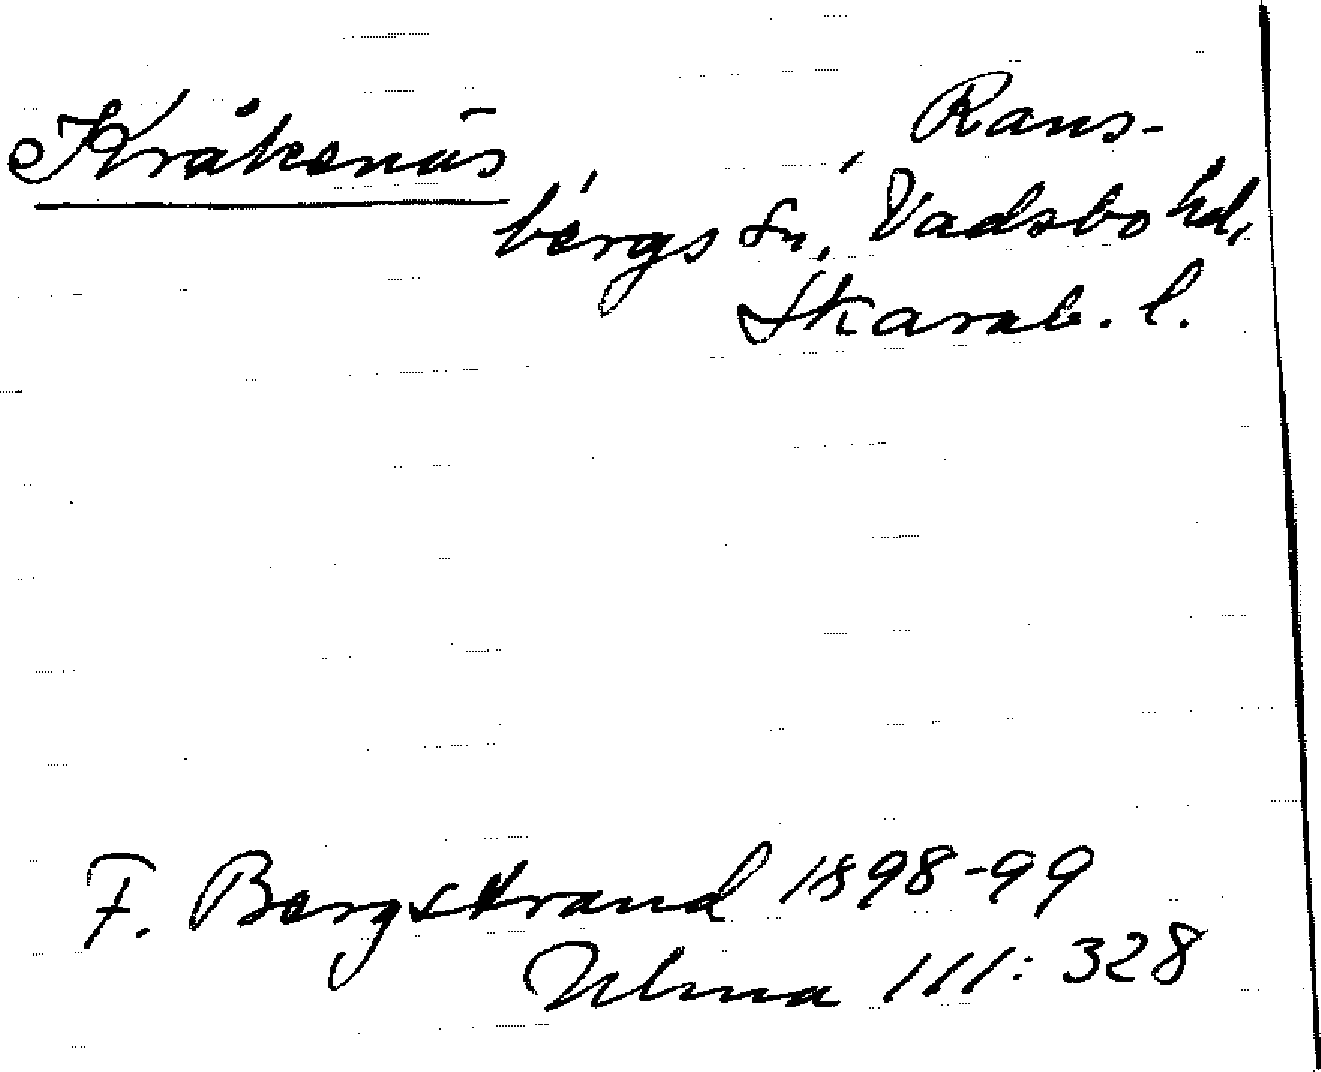 Kråkenäs, Rans-
bergs sn, Vadsbo hd,
Skarab. l.
F. Bergstrand 1898-99
Ulma 111:328